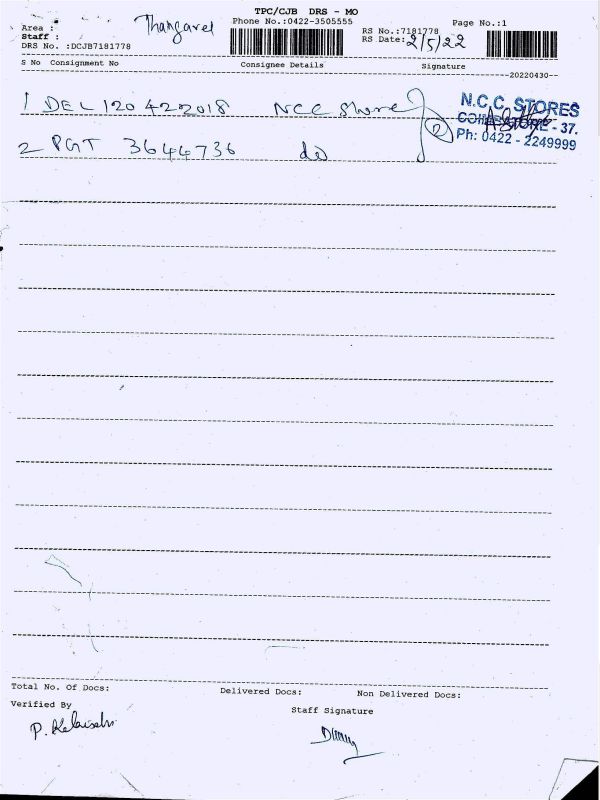 TPC/CJB DRS - MO
Area : Thangavel Phone No.:0422-3505555 Page No.:1
Staff : RS No.:7181778
DRS No. :DCJB7181778 RS Date: 2/5/22
S No Consignment No Consignee Details Signature
--20220430--
1 DEL 120422018 NCC Store
N.C.C. STORES
COIMBATORE - 37.
Ph: 0422 - 2249999
2
2 PGT 3644736 do
Total No. Of Docs: Delivered Docs: Non Delivered Docs:
Verified By Staff Signature
P.